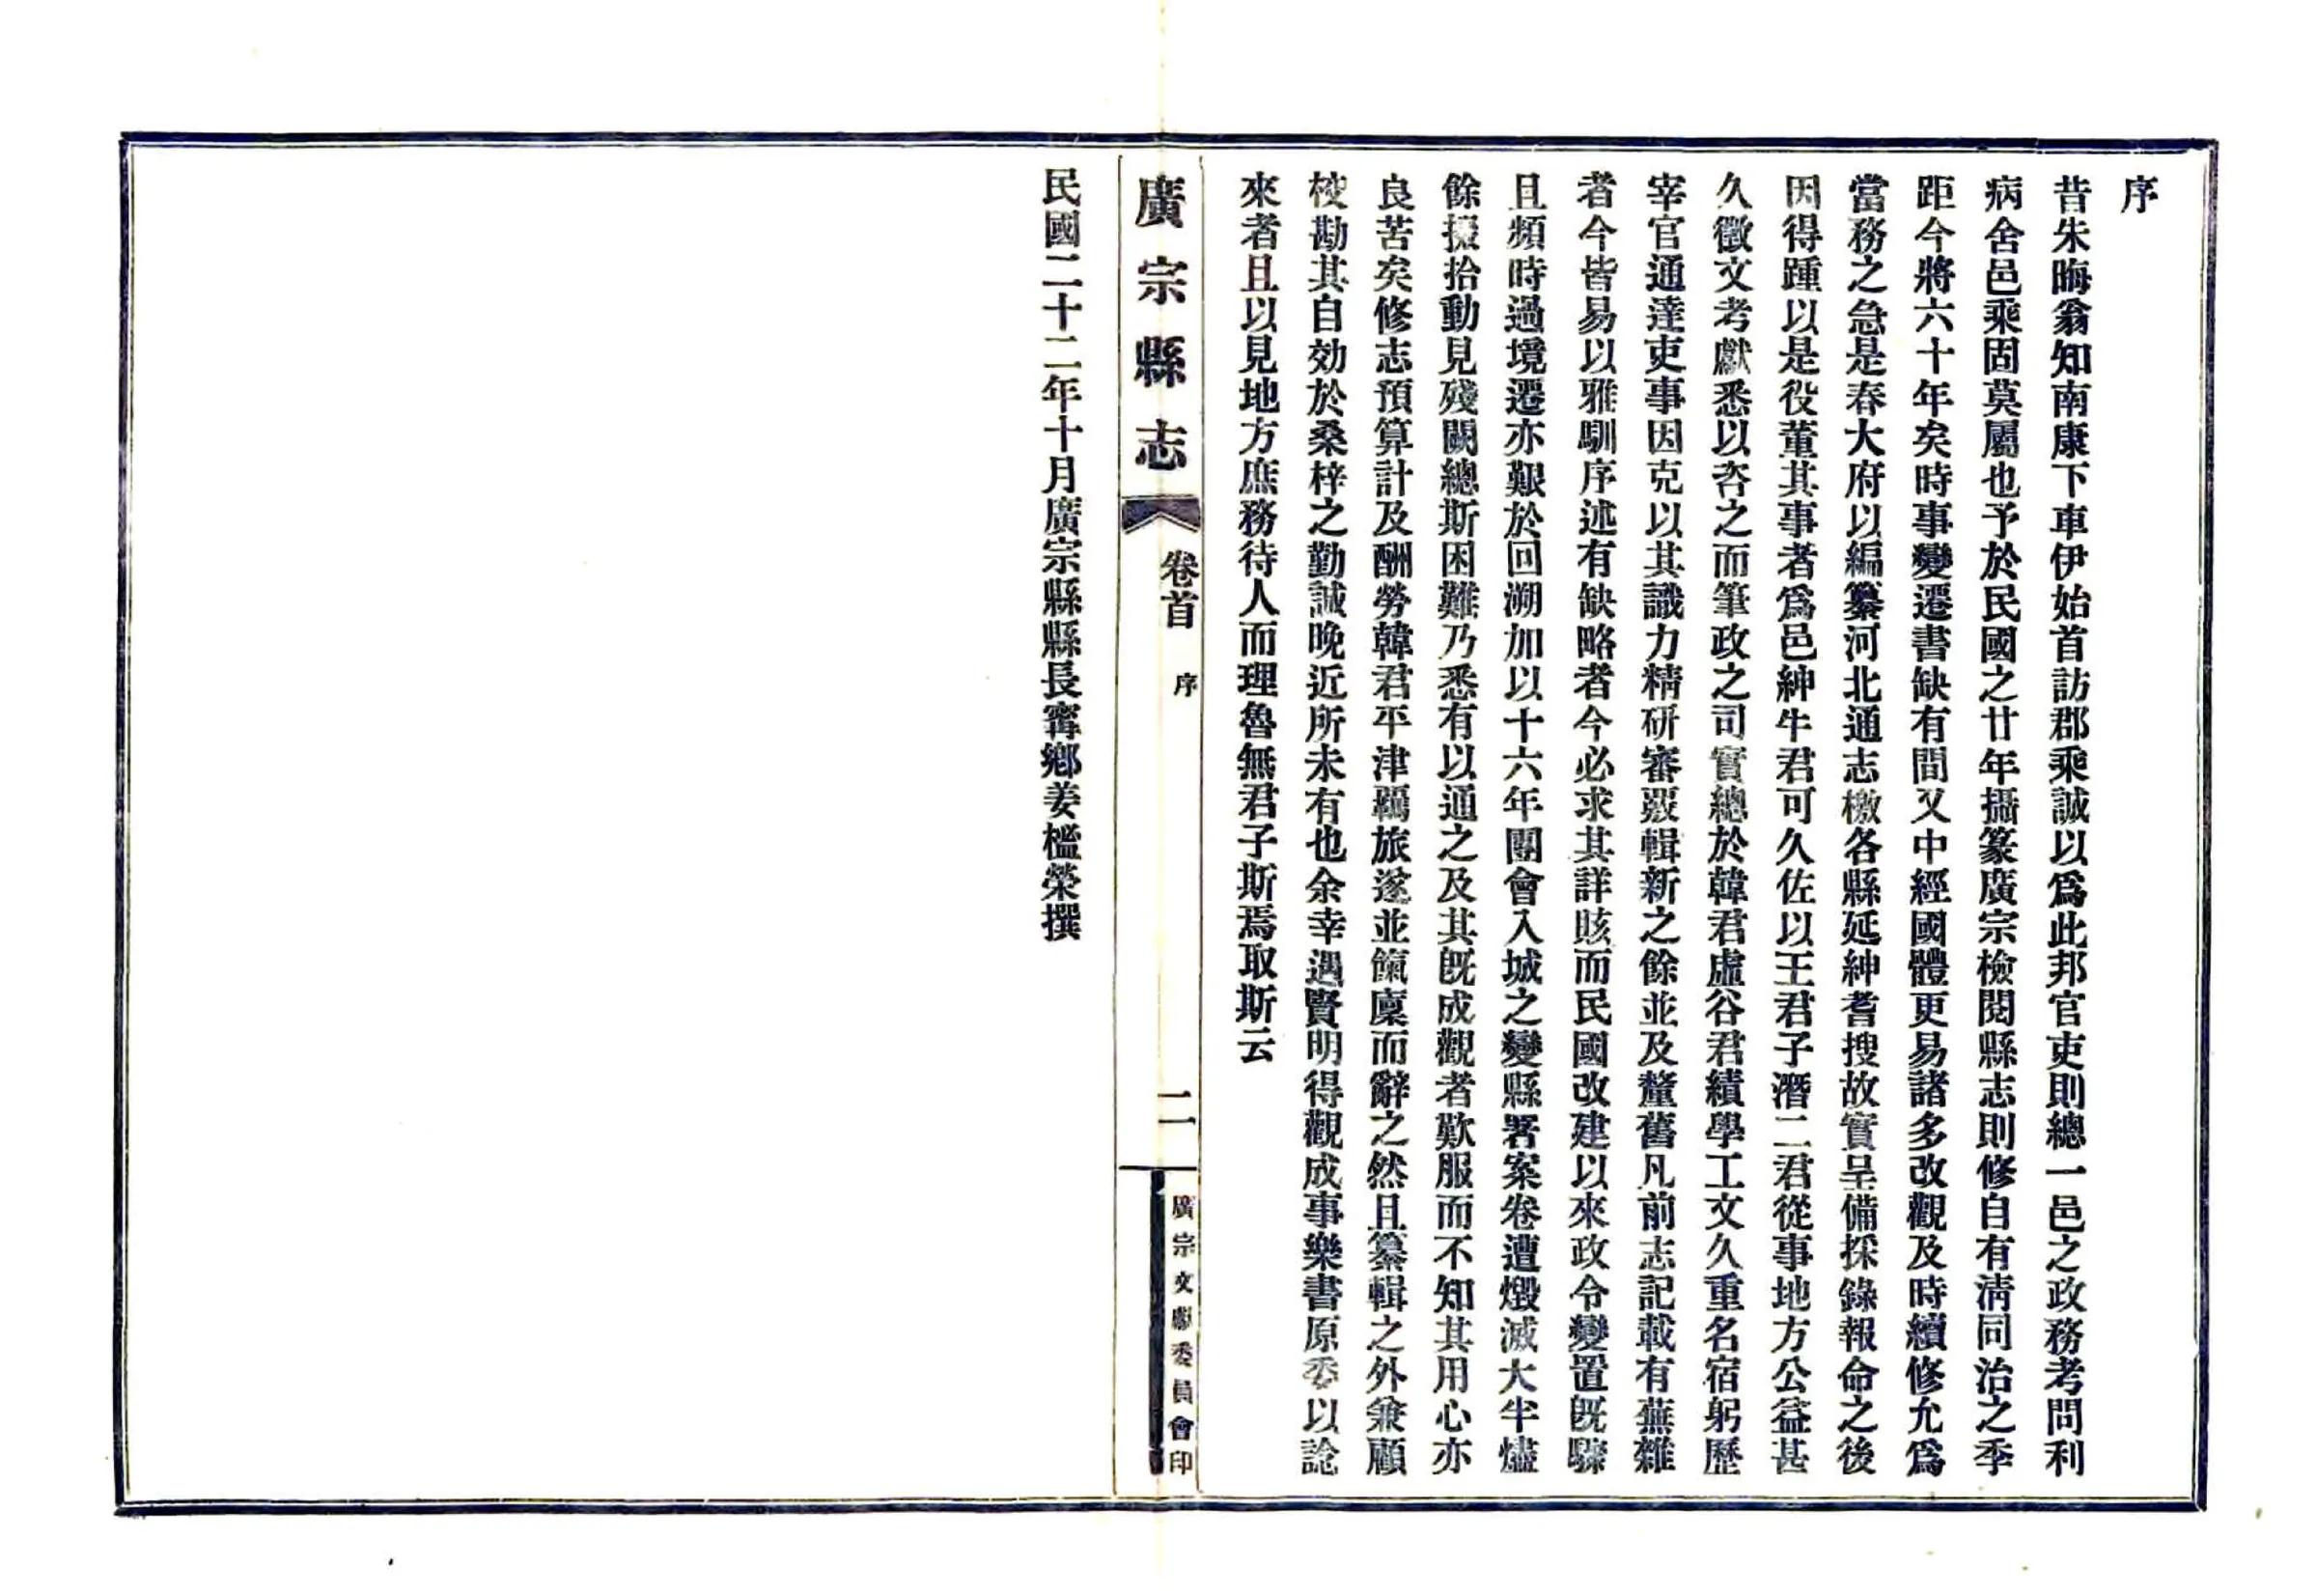 序
昔朱晦翁知南康下車伊始首訪郡乘誠以爲此邦官吏則總一邑之政務考問利
病舍邑乘固莫屬也予於民國之廿年攝篆廣宗檢閱縣志則修自有淸同治之季
距今將六十年矣時事變遷書缺有間又中經國體更易諸多改觀及時續修允爲
當務之急是春大府以編纂河北通志檄各縣延紳耆搜故實呈備採錄報命之後
因得踵以是役董其事者爲邑紳牛君可久佐以王君子潛二君從事地方公益甚
久徵文考獻悉以咨之而筆政之司實總於韓君虛谷君績學工文久重名宿躬歷
宰官通達吏事因克以其識力精研審覈輯新之餘並及釐舊凡前志記載有蕪雜
者今皆易以雅馴序述有缺略者今必求其詳賅而民國改建以來政令變置既驟
且頻時過境遷亦艱於回溯加以十六年團會入城之變縣署案卷遭燬滅大半燼
餘掇拾動見殘闕總斯困難乃悉有以通之及其既成觀者歎服而不知其用心亦
良苦矣修志預算計及酬勞韓君平津羈旅遂並餼廩而辭之然且纂輯之外兼顧
校勘其自効於桑梓之勤誠晚近所未有也余幸遇賢明得觀成事樂書原委以諗
來者且以見地方庶務待人而理魯無君子斯焉取斯云
廣宗縣志
卷首
序
二
廣宗文獻委員會印
民國二十二年十月廣宗縣縣長寗鄉姜榲榮撰